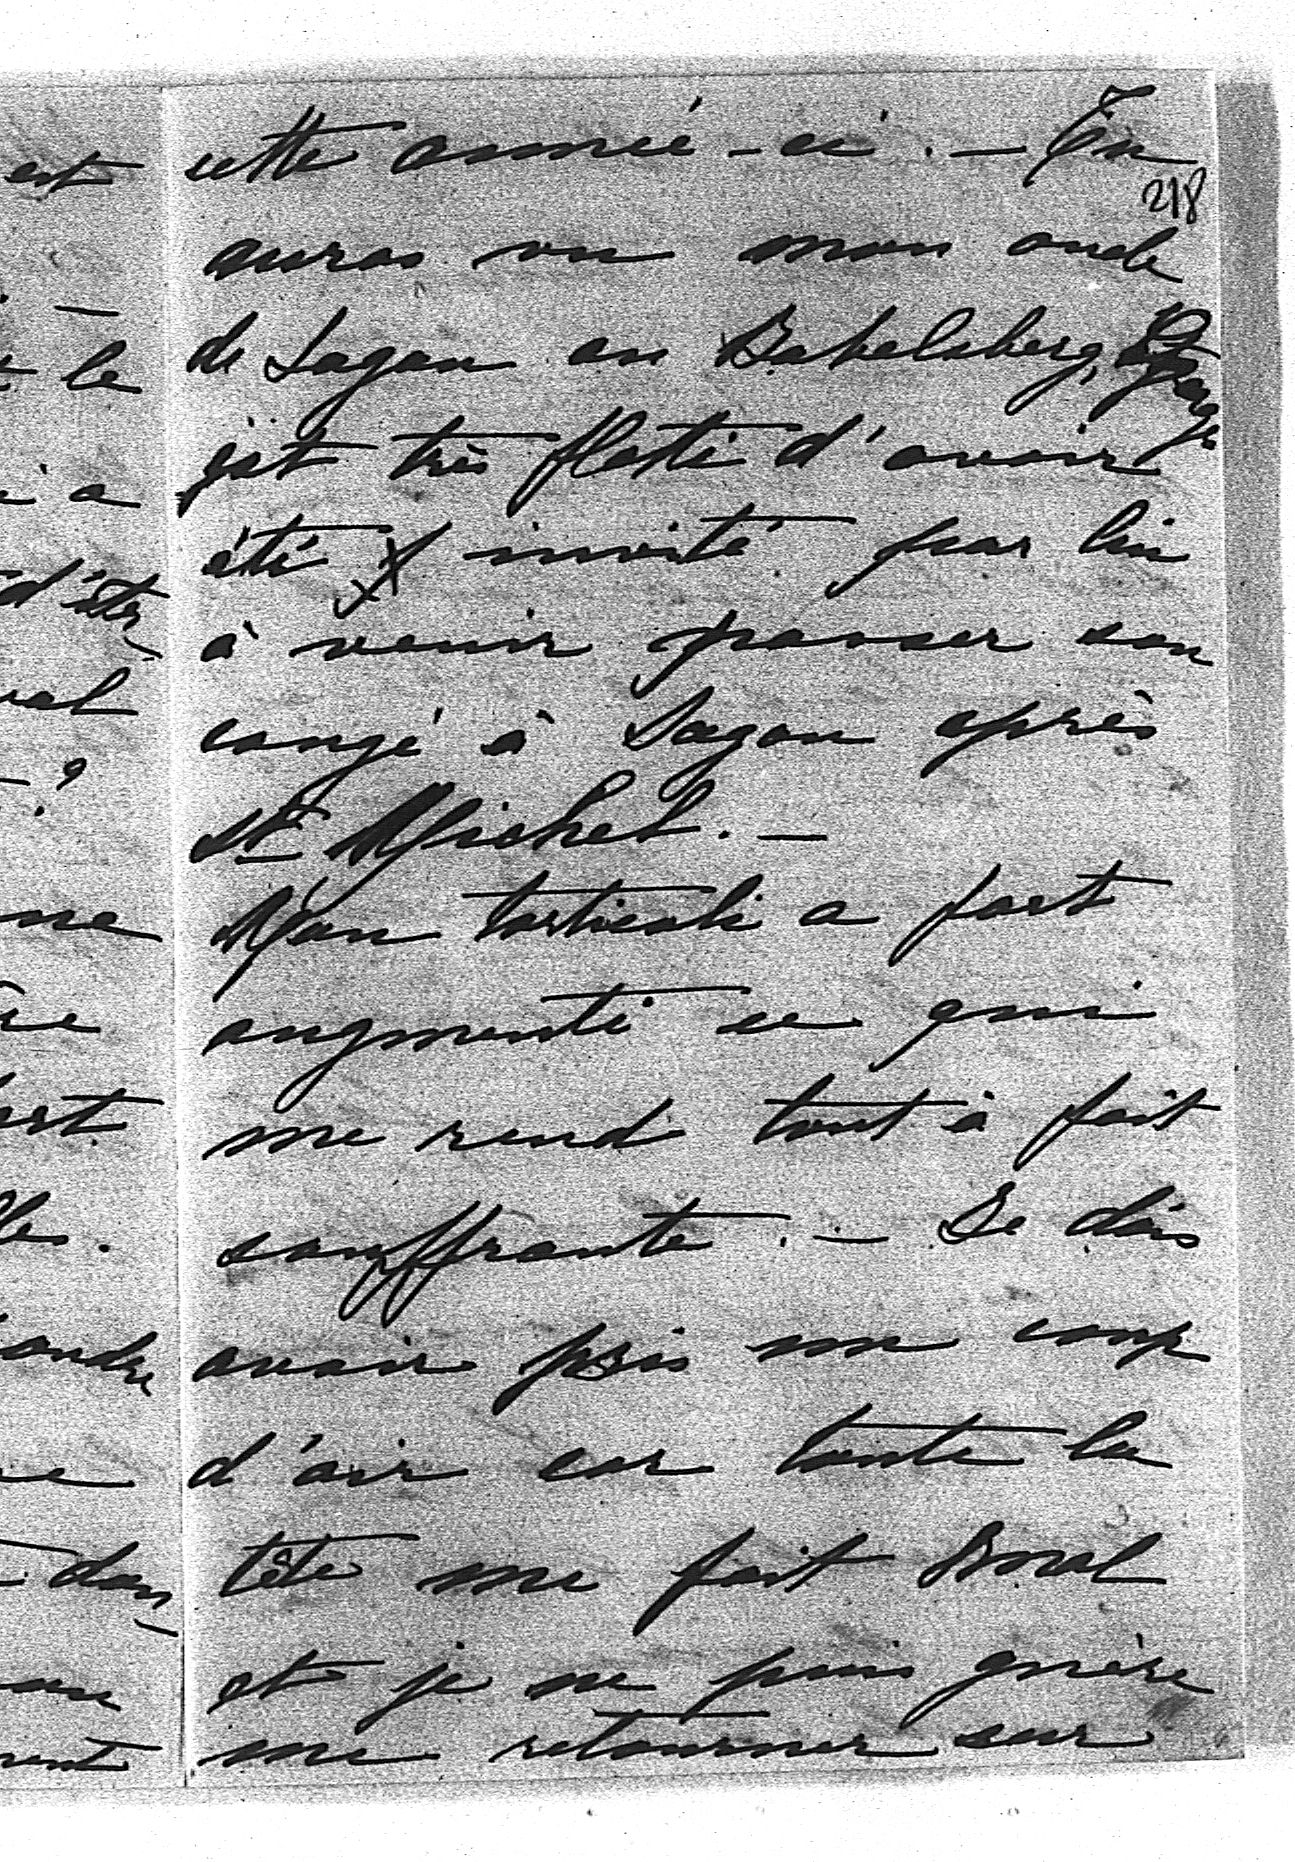 est
le
a
d'être
val
?
me
ert
les.
ondre
dan
ment
cette année-ci. — Tu
218
auras vu mon oncle
de Sagan au Babelsberg, George
est très flatté d'avoir
été invité par lui
à venir passer son
congé à Sagan après
St Michel. —
Mon torticoli a fort
augmenté ce qui
me rend tout à fait
souffrante. — Je dois
avoir pris un coup
d'air car toute la
tête me fait mal
et je ne puis guère
me retourner sur